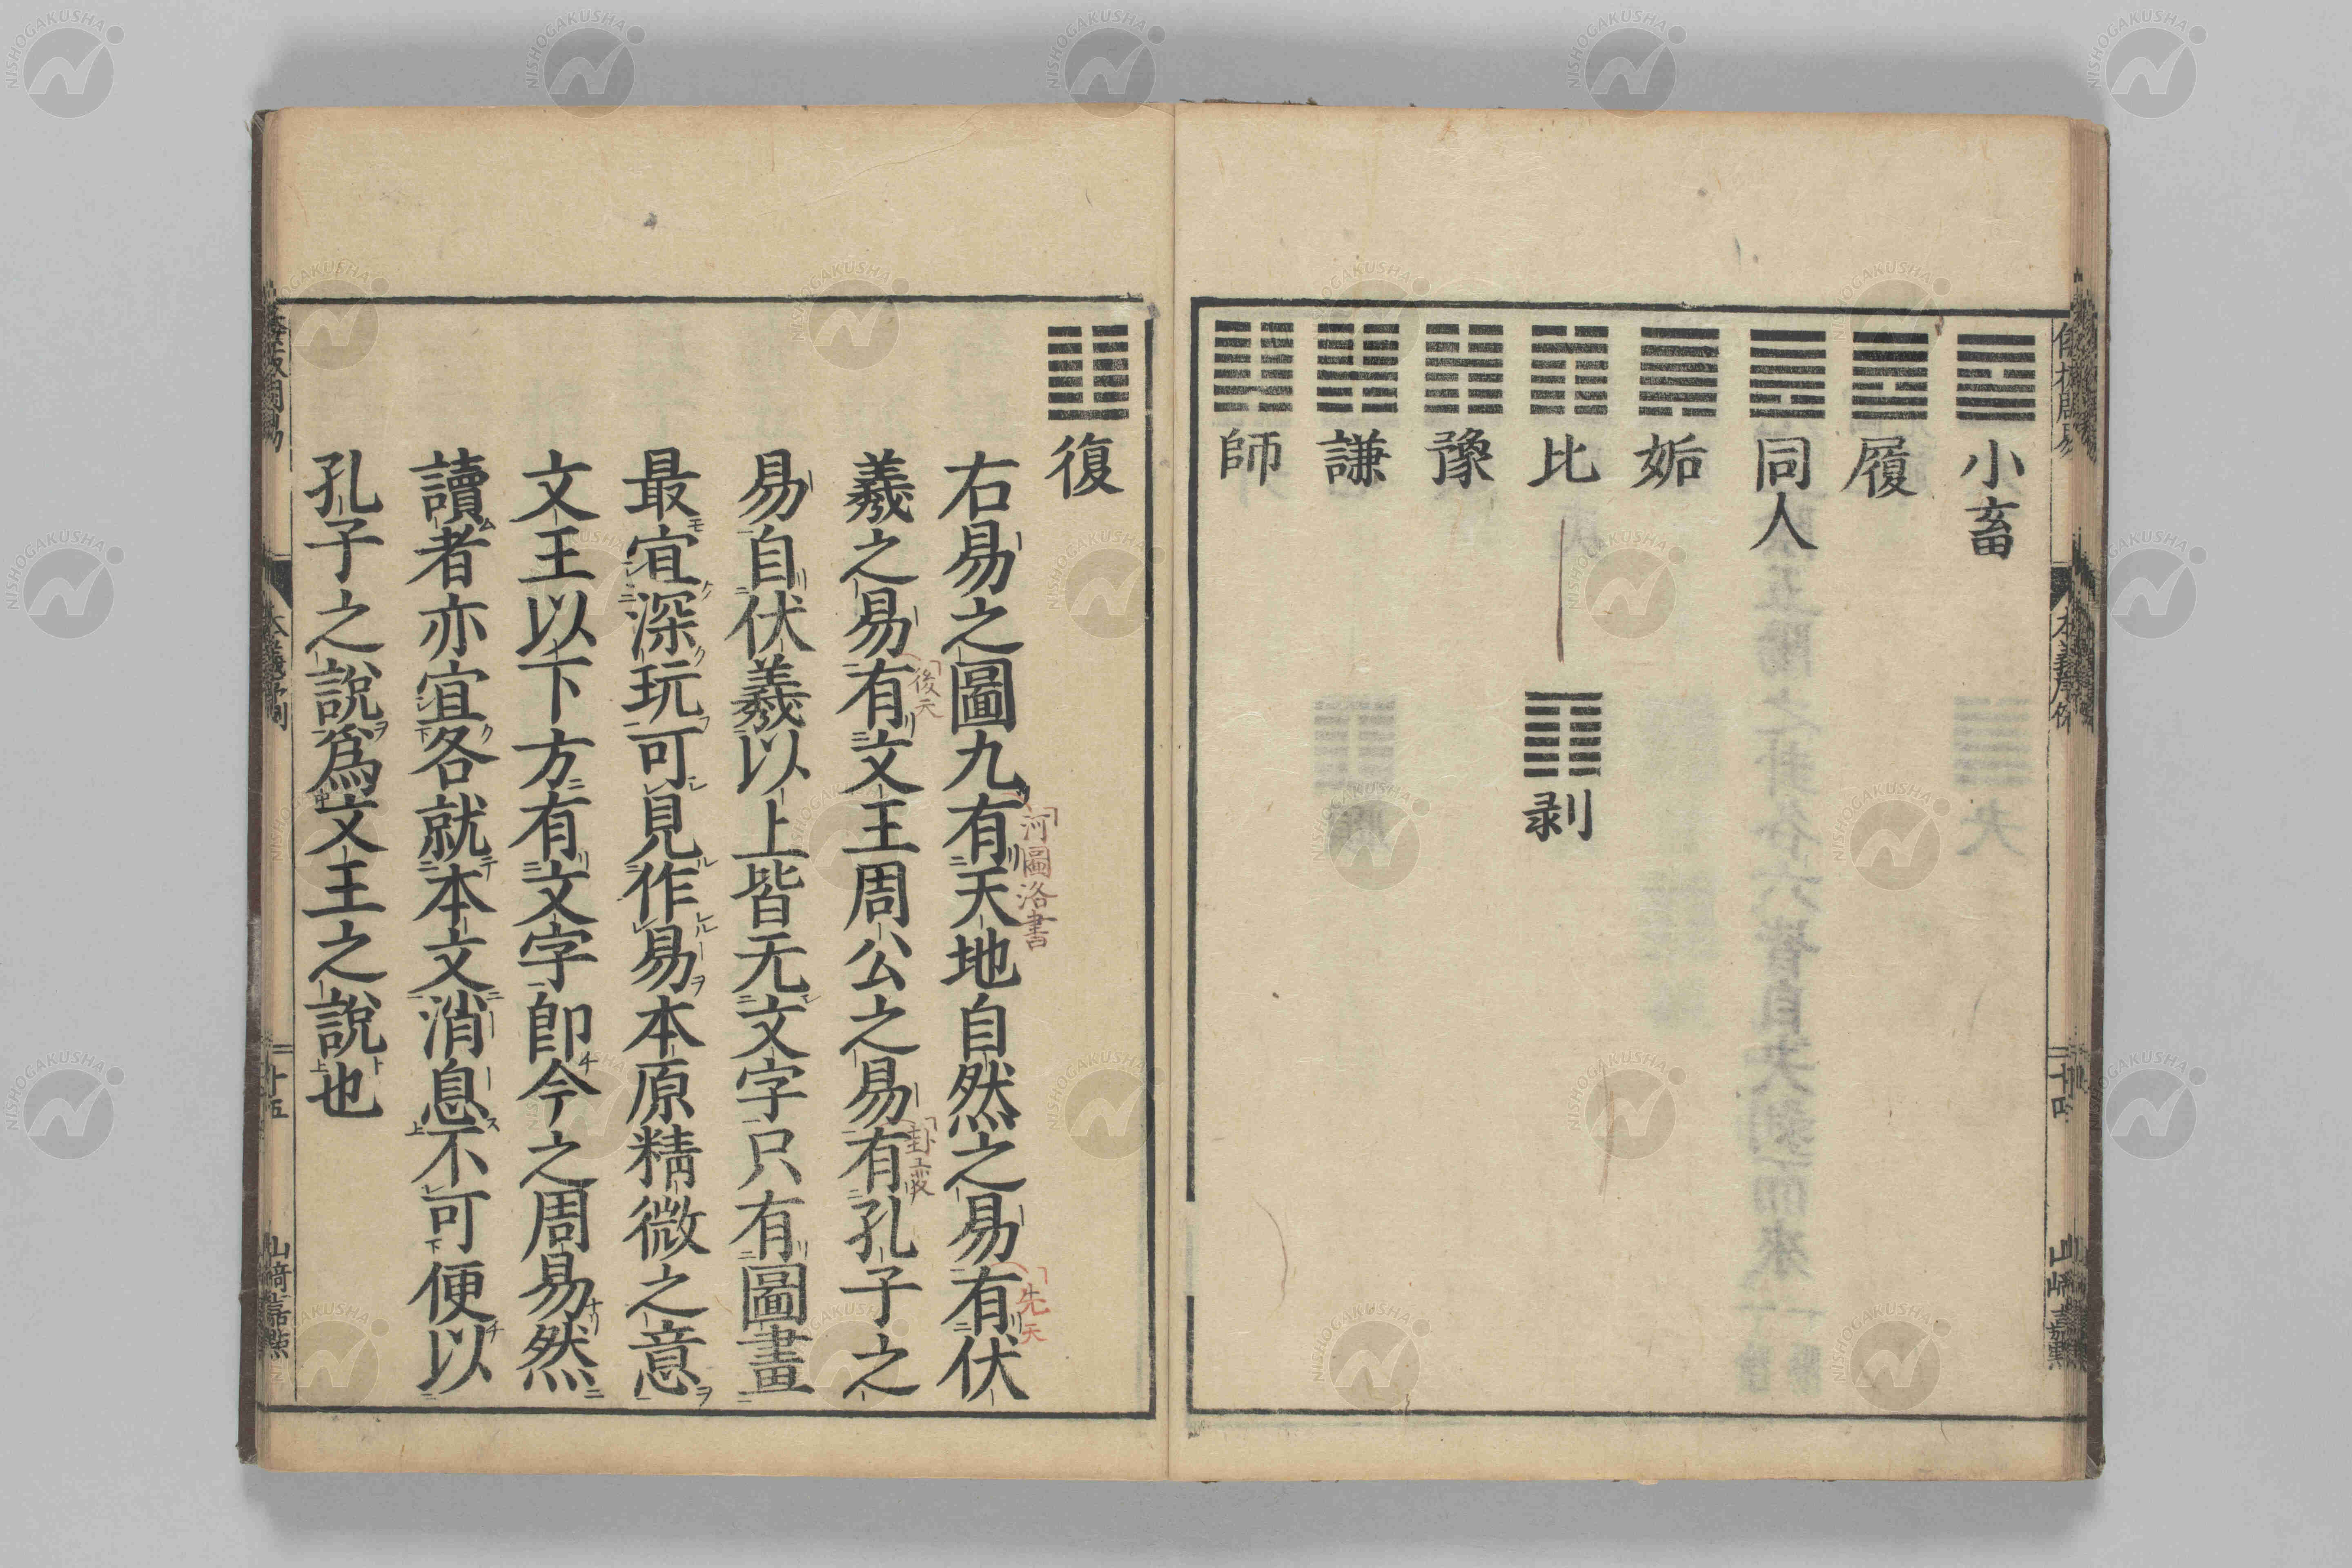 小畜
履
同人
姤
比
剥
豫
謙
師
本義序例
二十四
山﨑嘉點
復
右易之圖九有天地自然之易有伏
河圖洛書
先天
羲之易有文王周公之易有孔子之
後天
易自伏羲以上皆无文字只有圖畫
最宜深玩可見作易本原精微之意
文王以下方有文字即今之周易然
讀者亦宜各就本文消息不可便以
孔子之說爲文王之說也
山﨑嘉點
NISHOGAKUSHA